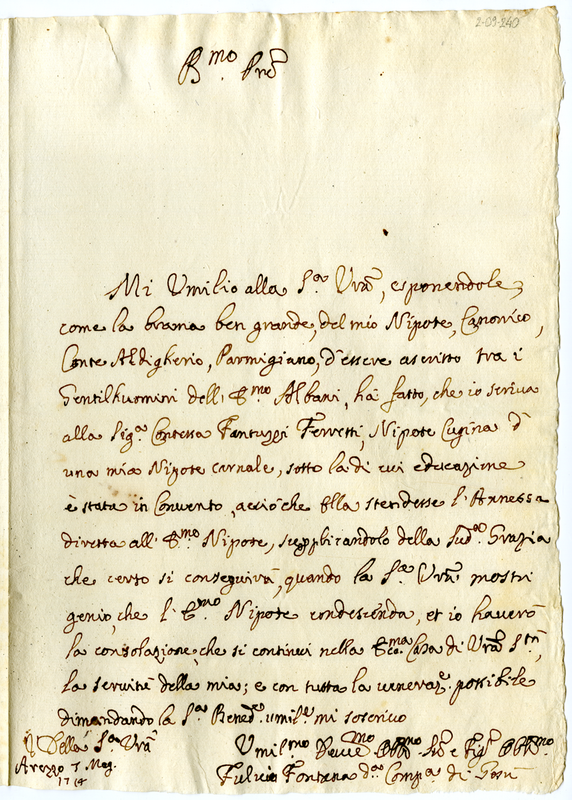 2-09-240
B.mo Pre
Mi Umilio alla S.ta Vra, esponendole,
come la brama ben grande, del mio Nipote, Canonico,
Conte Aldigherio, Parmigiano, d'essere ascritto tra i
Gentilhuomini dell' E.mo Albani, hà fatto, che io scriva
alla Sig.a Contessa Fantuzzi Ferretti, Nipote Cugina d'
una mia Nipote carnale, sotto la di cui educazione
è stata in Convento, acciò che Ella stendesse l'Annessa
diretta all' E.mo Nipote, supplicandolo della Sud.a Grazia
che certo si conseguirà, quando la S.tà Vra mostri
genio, che l' E.mo Nipote condescenda, et io haverò
la consolazione, che si continui nella Ecc.ma Casa di Vra S.tà,
la servitù della mia; e con tutta la veneraz.e possibile
dimandando la S.a Bened.e umil.e mi soscrivo
Della S.tà Vra
Arezzo 7 Mag.
1714
Umil.mo Obb.mo e Figl. Obb.mo
Fulvio Fontana d.a Comp.a di Gesù